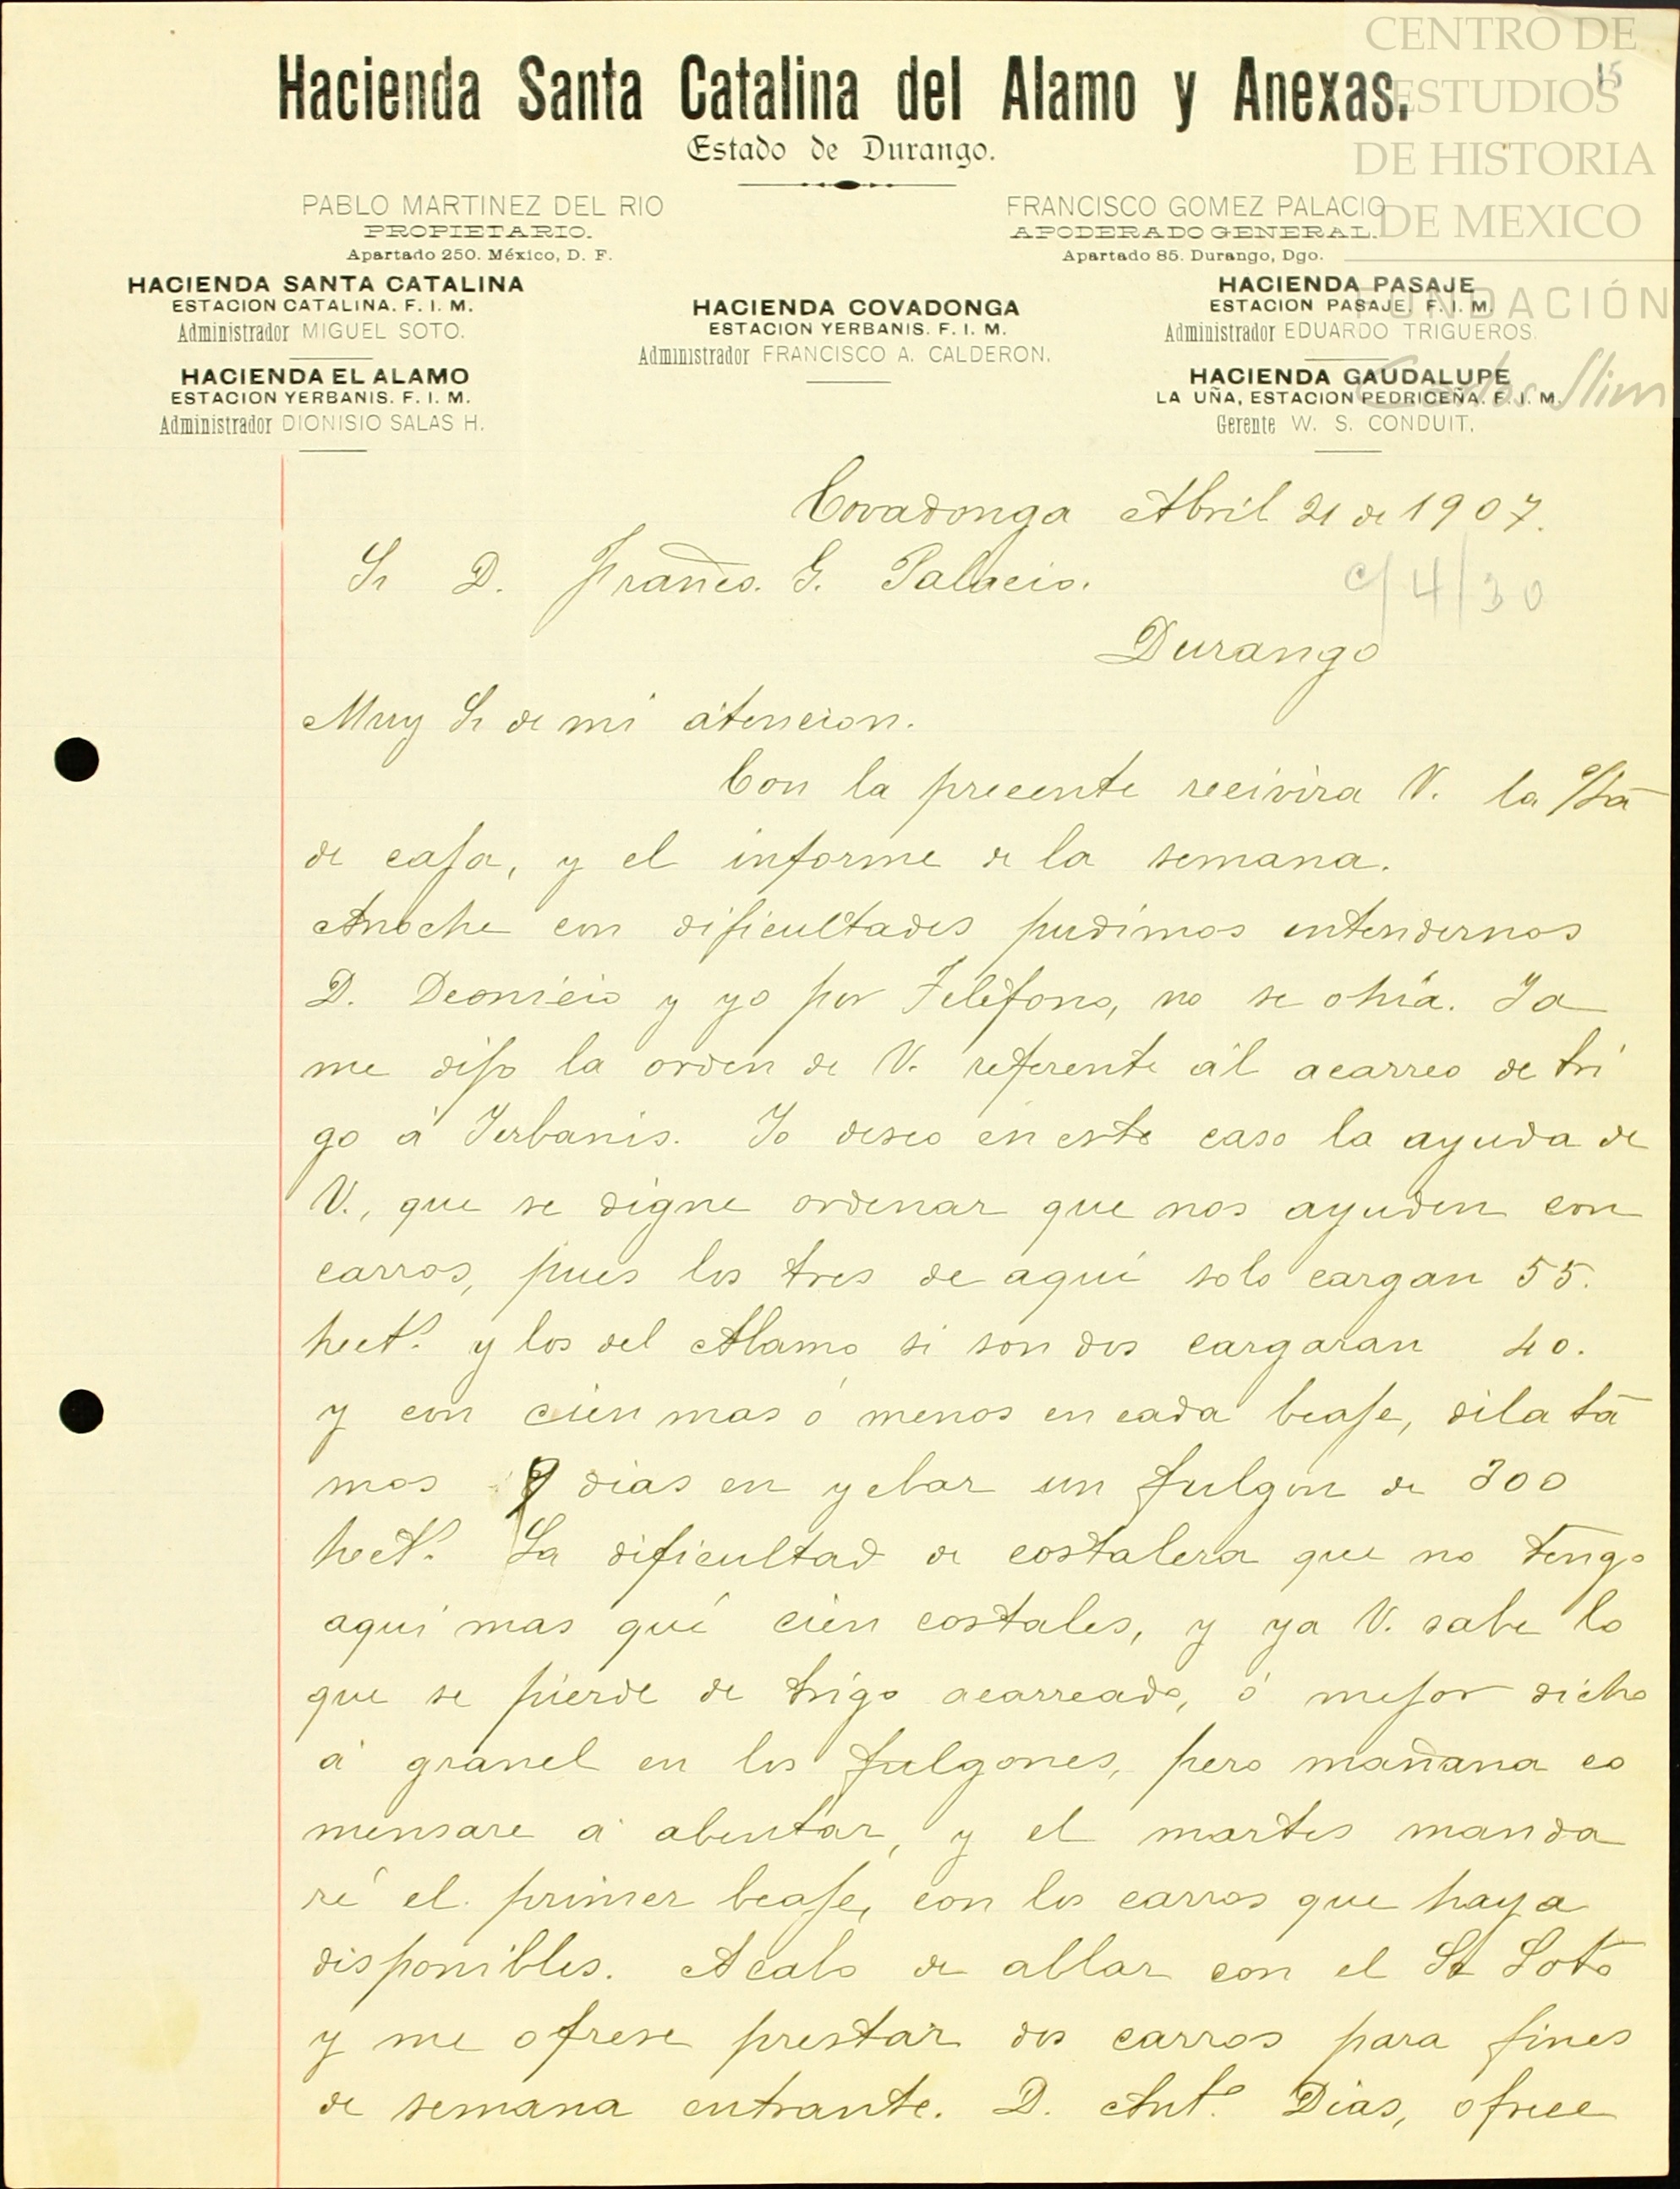 CENTRO DE
ESTUDIOS
DE HISTORIA
DE MEXICO
FUNDACIÓN
Carlos Slim
15
Hacienda Santa Catalina del Alamo y Anexas.
Estado de Durango.
PABLO MARTINEZ DEL RIO
PROPIETARIO.
Apartado 250. México, D. F.
FRANCISCO GOMEZ PALACIO
APODERADO GENERAL.
Apartado 85. Durango, Dgo.
HACIENDA SANTA CATALINA
ESTACION CATALINA. F. I. M.
Administrador MIGUEL SOTO.
HACIENDA EL ALAMO
ESTACION YERBANIS. F. I. M.
Administrador DIONISIO SALAS H.
HACIENDA COVADONGA
ESTACION YERBANIS. F. I. M.
Administrador FRANCISCO A. CALDERON.
HACIENDA PASAJE
ESTACION PASAJE. F. I. M.
Administrador EDUARDO TRIGUEROS.
HACIENDA GAUDALUPE
LA UÑA, ESTACION PEDRICEÑA. F. I. M.
Gerente W. S. CONDUIT.
Covadonga Abril 21 de 1907.
Sr D. Franco. G. Palacio.
c/4/30
Durango
Muy Sr de mi átencion.
Con la precente recivira V. la c/ta
de caja, y el informe de la semana.
Anoche con dificultades pudimos entendernos
D. Deonicio y yo por Teléfono, no se ohia. Ya
me dijo la orden de V. referente ál acarreo de tri
go á Yerbanis. Yo deseo en este caso la ayuda de
V., que se digne ordenar que nos ayuden con
carros, pues los tres de aquí solo cargan 55.
hects. y los del Alamo si son dos cargaran 40.
y con cien mas ó menos en cada beaje, dilata
mos 9 dias en yebar un fulgon de 300
hects. La dificultad de costalera que no tengo
aqui mas qué cien costales, y ya V. sabe lo
que se pierde de trigo acarreado, ó mejor dicho
á granel en los fulgones, pero mañana co
mensare á abentar, y el martes manda
ré el primer beaje, con los carros que haya
disponibles. Acabo de ablar con el Sr Soto
y me ofrese prestar dos carros para fines
de semana entrante. D. Anto. Dias, ofrece